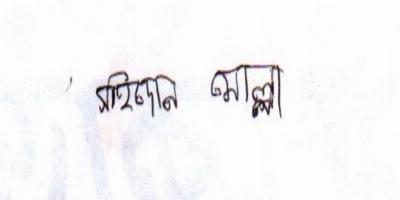 সহিদোল মোল্লা